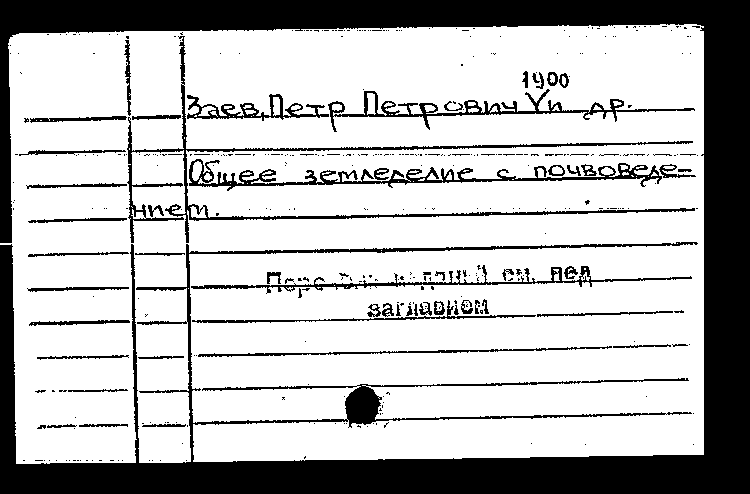 1900
Заев, Петр Петрович и др.
Общее земледелие с почвоведе-
нием.
Перечень изданий см. под
заглавием